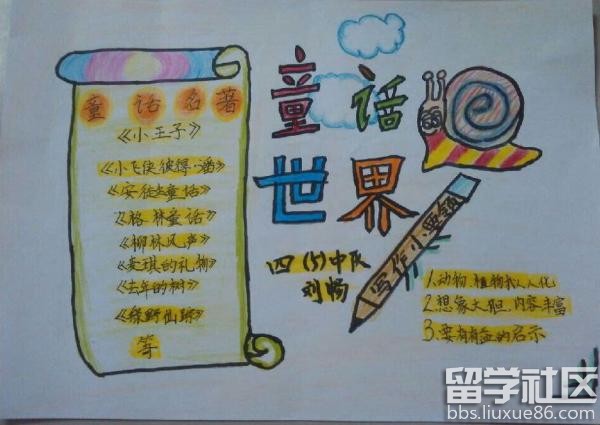 童话名著
《小王子》
《小飞侠彼得·潘》
《安徒生童话》
《格林童话》
《柳林风声》
《麦琪的礼物》
《去年的树》
《绿野仙踪》
等
童话
世界
四(5)中队
刘畅
写作小要领
1.动物、植物拟人化
2.想象大胆,内容丰富
3.要有有益的启示
留学社区
bbs.liuxue86.com